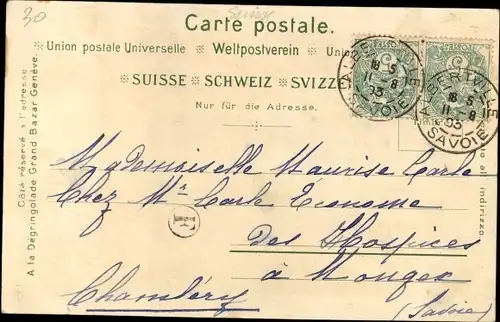 30
Suisse
Carte postale.
Union postale Universelle Weltpostverein Uni
SUISSE SCHWEIZ SVIZZ
Nur für die Adresse.
Côté réservé à l'adresse.
A la Dégringolade Grand Bazar Genève.
ALBERTVILLE
18 5
11 8
03
SAVOIE
ALBERTVILLE
18 5
11 8
03
SAVOIE
to all' indirizzo.
Mademoiselle Maurise Carle
Chez Mr Carle Econome
des Hospices
E
à Mouger
Chambéry (Savoie)